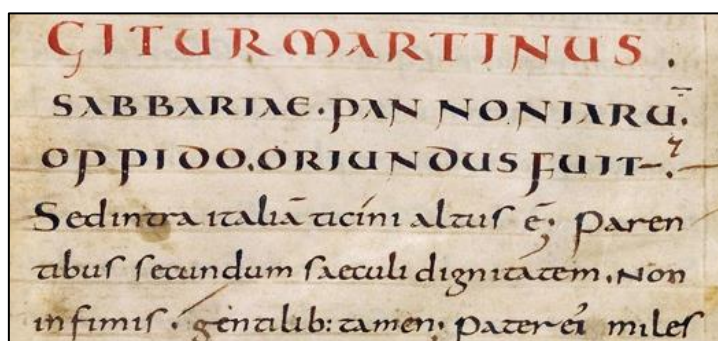 GITUR MARTINUS.
SABBARIAE. PANNONIARŪ.
OPPIDO. ORIUNDUS FUIT.
Sed intra italiā ticini altus ē; Paren
tibus secundum saeculi dignitatem, Non
infimis. gentilib: tamen; Pater ei miles